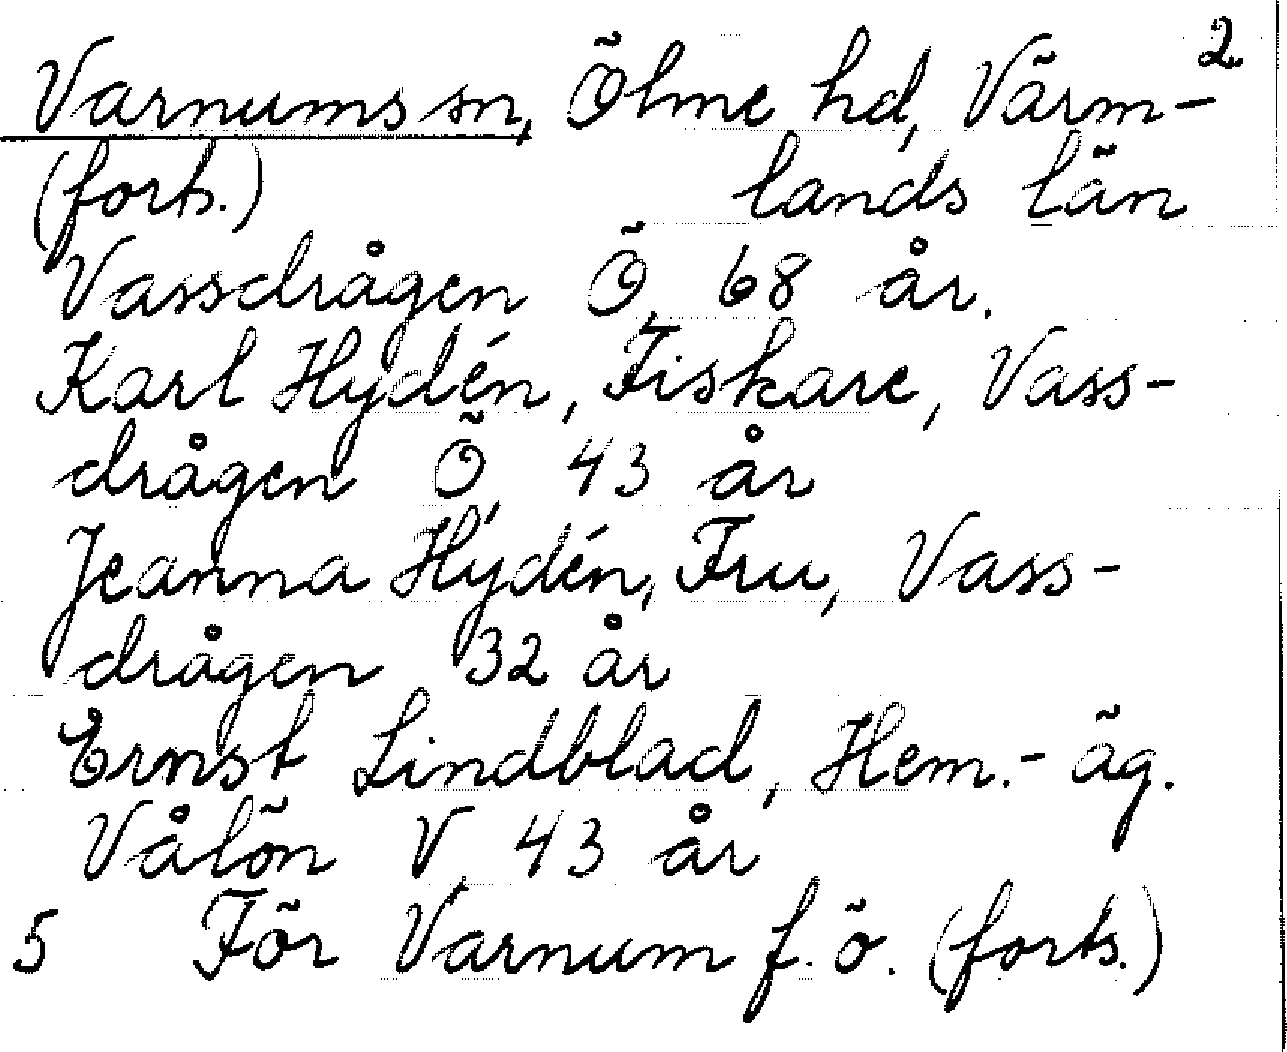 2.
Varnums sn, Ölme hd, Värm-
(forts.) lands län
Vassdrågen Ö, 68 år.
Karl Hydén, Fiskare, Vass-
drågen Ö, 43 år
Jeanna Hydén, Fru, Vass-
drågen 32 år
Ernst Lindblad, Hem.-äg.
Vålön V, 43 år
5 För Varnum f. ö. (forts.)